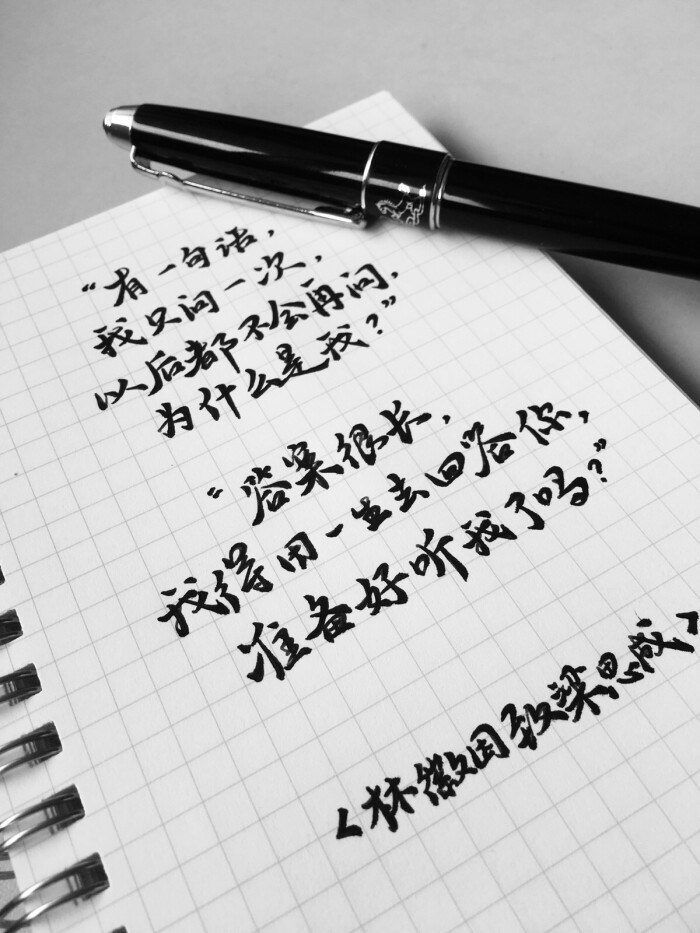 “有一句话，
我只问一次，
以后都不会再问，
为什么是我？”
“答案很长，
我得用一生去回答你，
准备好听我了吗？”
<林徽因致梁思成>